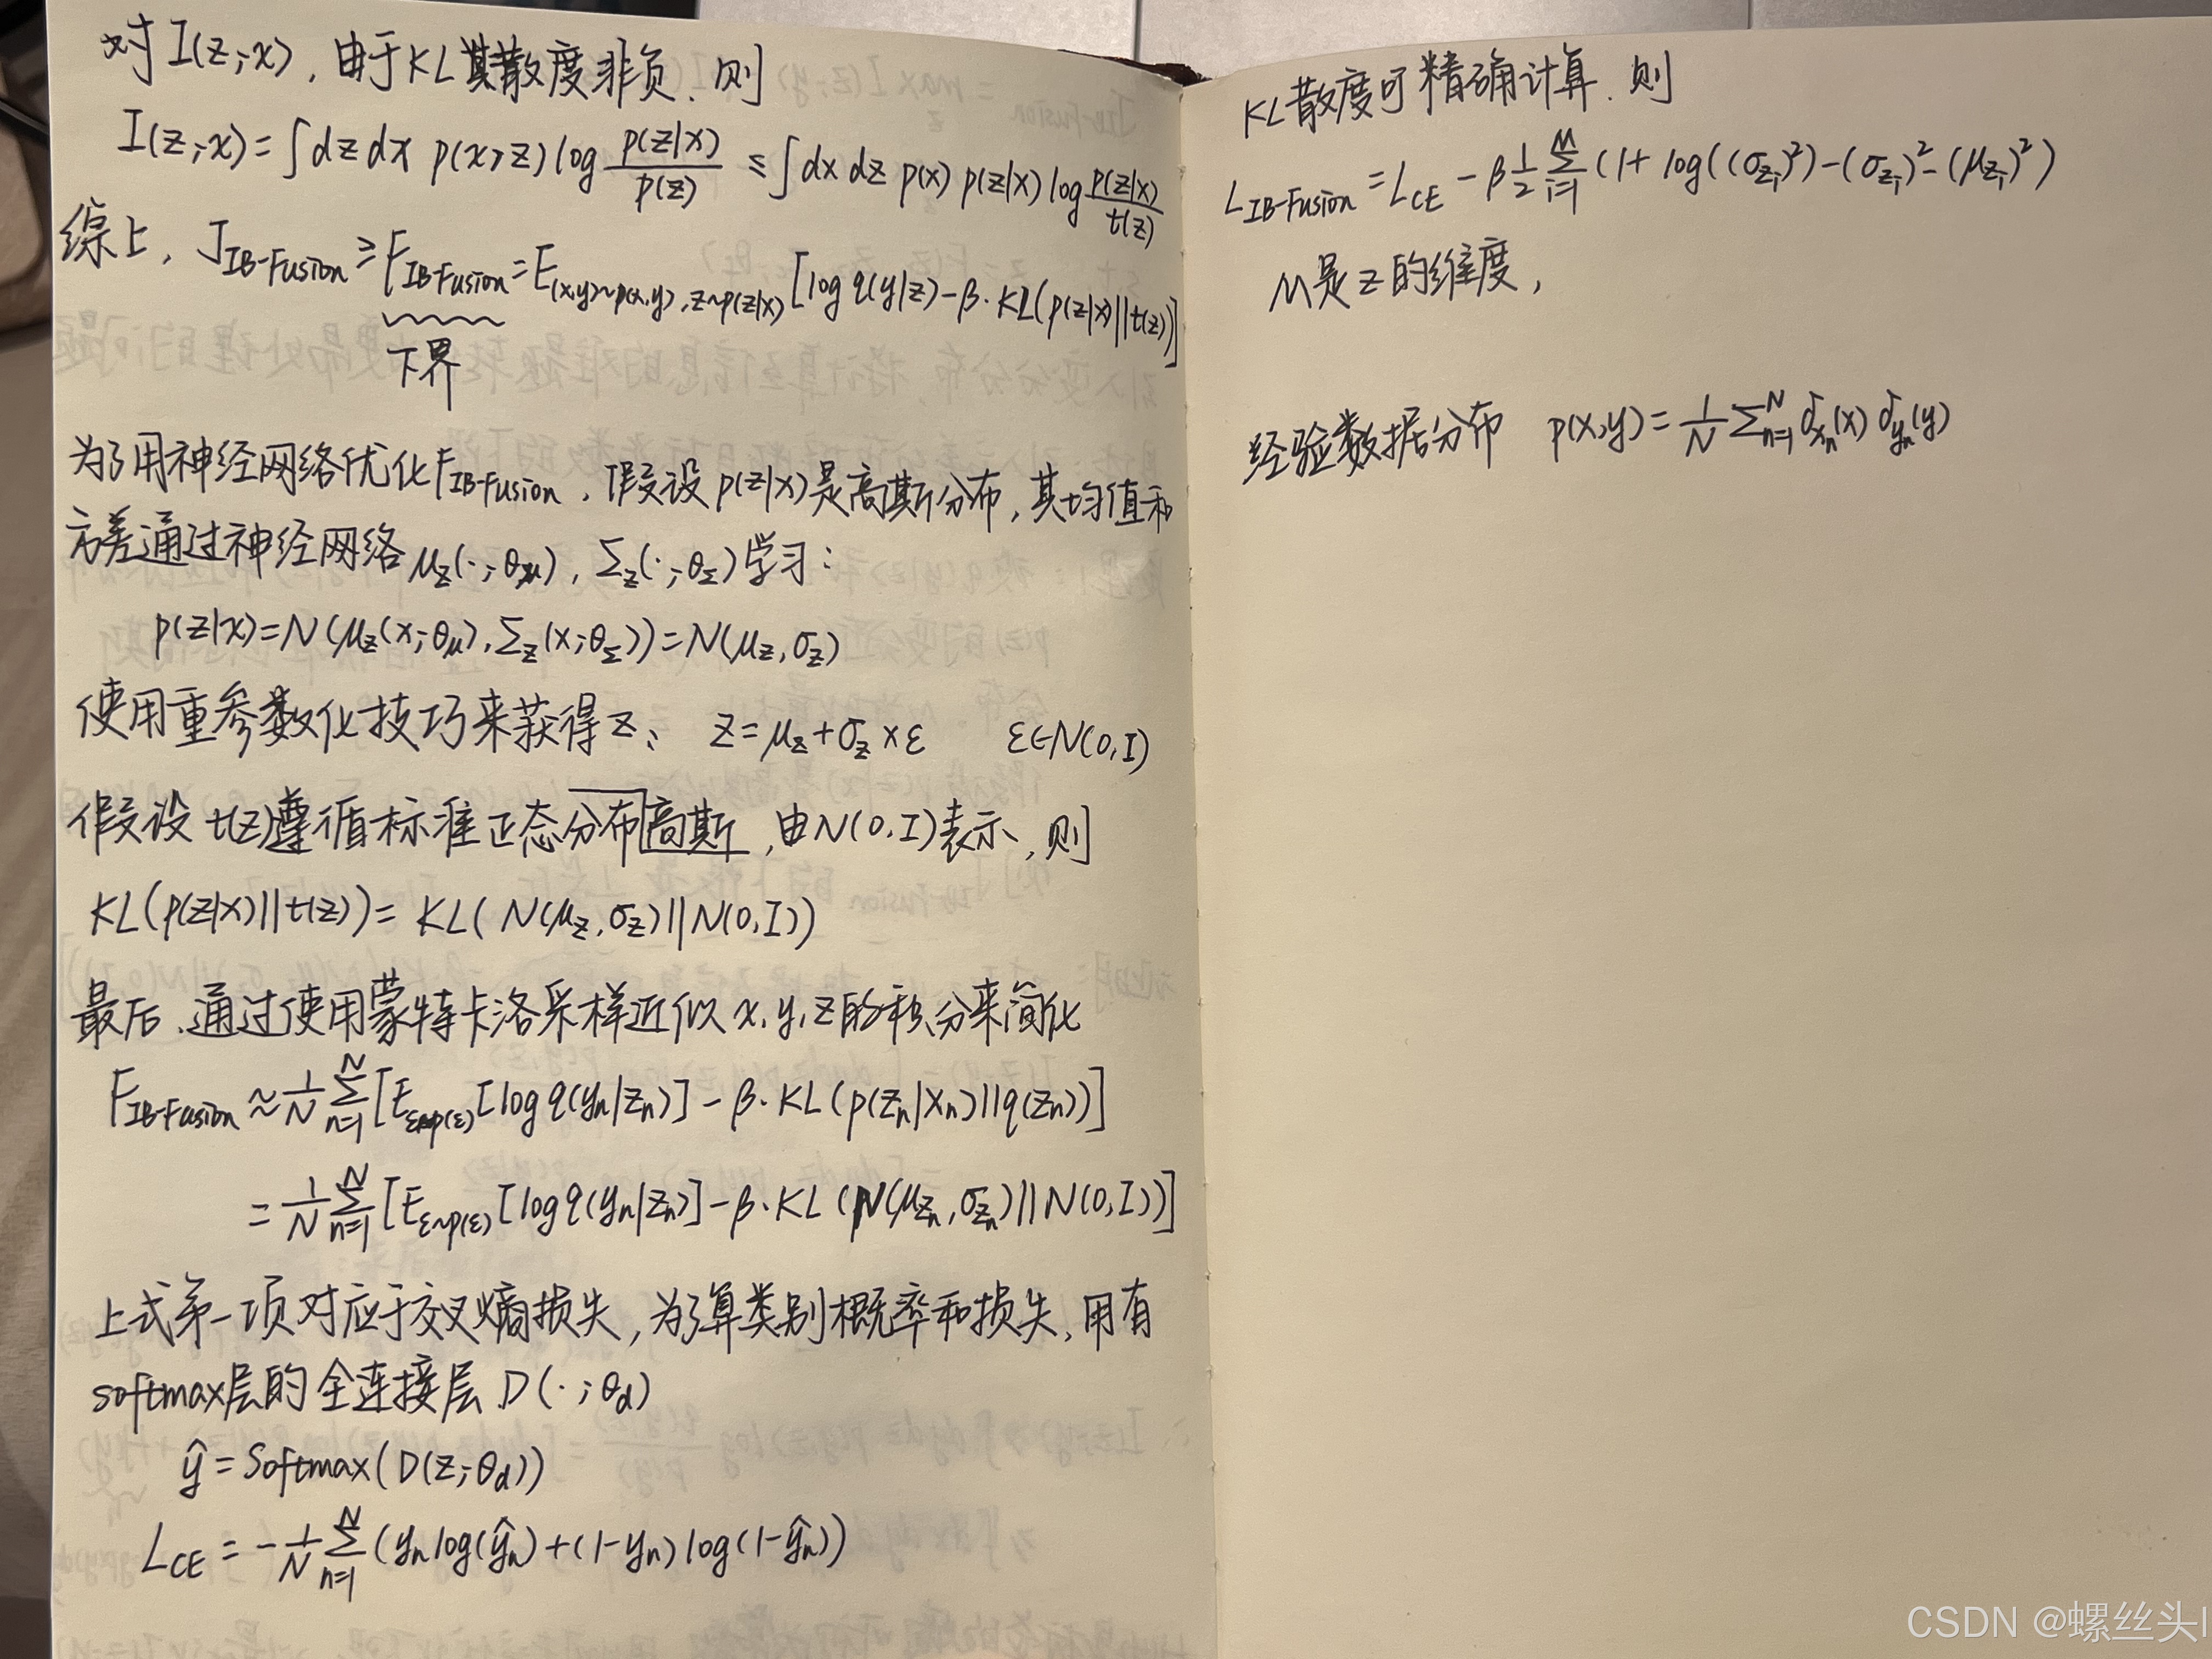 对 I(z;x), 由于KL散度非负、则
I(z;x) = ∫dz dx p(x,z) log p(z|x)/p(z) ≤ ∫dx dz p(x) p(z|x) log p(z|x)/t(z)
综上, J_IB-Fusion ≥ F_IB-Fusion = E_(x,y)~p(x,y), z~p(z|x) [log q(y|z) - β·KL(p(z|x)||t(z))]
下界
为了用神经网络优化F_IB-Fusion, 假设p(z|x)是高斯分布, 其均值和
方差通过神经网络 μ_z(·;θ_μ), Σ_z(·;θ_Σ) 学习:
p(z|x) = N(μ_z(x;θ_μ), Σ_z(x;θ_Σ)) = N(μ_z, σ_z)
使用重参数化技巧来获得z: z = μ_z + σ_z × ε ε∈N(0,I)
假设 t(z)遵循标准正态分布高斯, 由N(0,I)表示, 则
KL(p(z|x)||t(z)) = KL(N(μ_z,σ_z)||N(0,I))
最后、通过使用蒙特卡洛采样近似 x,y,z的积分来简化
F_IB-Fusion ≈ 1/N Σ_{n=1}^N [E_ε~p(ε) [log q(y_n|z_n)] - β·KL(p(z_n|x_n)||q(z_n))]
= 1/N Σ_{n=1}^N [E_ε~p(ε) [log q(y_n|z_n)] - β·KL(N(μ_{z_n},σ_{z_n})||N(0,I))]
上式第一项对应于交叉熵损失, 为了算类别概率和损失, 用有
softmax层的全连接层 D(·;θ_d)
ŷ = Softmax(D(z;θ_d))
L_CE = -1/N Σ_{n=1}^N (y_n log(ŷ_n) + (1-y_n) log(1-ŷ_n))
KL散度可精确计算、则
L_IB-Fusion = L_CE - β 1/2 Σ_{i=1}^M (1 + log((σ_{z_i})²) - (σ_{z_i})² - (μ_{z_i})²)
M是z的维度,
经验数据分布 p(x,y) = 1/N Σ_{n=1}^N δ_{x_n}(x) δ_{y_n}(y)
CSDN @螺丝头l